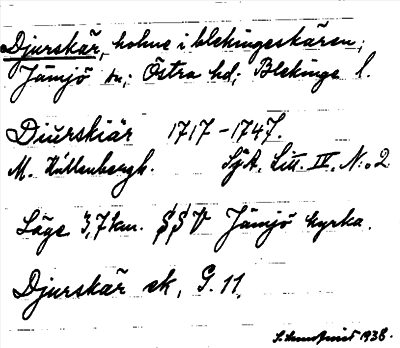 Djurskär, holme i blekingeskären;
Jämjö sn; Östra hd; Blekinge l.
Diurskiär 1717-1747.
M. Hällenbergh. Sjk. Litt. IV, N:o 2
Läge 3,7 km. SSV Jämjö kyrka.
Djurskär ek, G. 11.
1938.